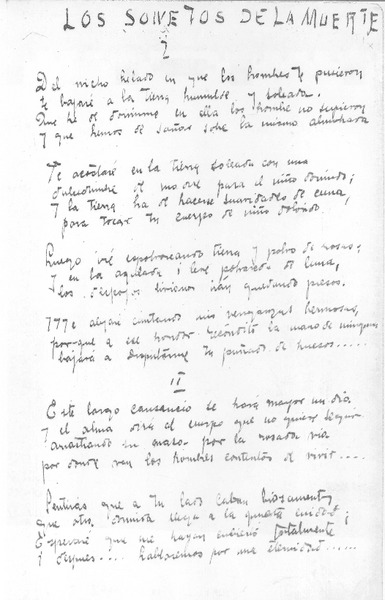 LOS SONETOS DE LA MUERTE
I
Del nicho helado en que los hombres te pusieron
te bajaré a la tierra humilde y soleada.
Que he de dormirme en ella los hombres no supieron
y que hemos de soñar sobre la misma almohada
Te acostaré en la tierra soleada con una
dulcedumbre de madre para el niño dormido;
y la tierra ha de hacerse suavidades de cuna,
para tocar tu cuerpo de niño dolorido.
Luego iré espolvoreando tierra y polvo de rosas;
y en la azulada i leve polvareda de luna,
los despojos livianos irán quedando presos.
me alejaré cantando mis venganzas hermosas,
porque a ese hondor recóndito la mano de ninguna
bajará a disputarme tu puñado de huesos.....
II
Este largo cansancio se hará mayor un día
y el alma dirá al cuerpo que no quiere seguir
arrastrando su masa por la rosada vía
por donde van los hombres contentos de vivir....
Sentirás que a tu lado cavan briosamente,
que otra dormida llega a la quieta ciudad;
Esperaré que me hayan cubierto totalmente
i después.... hablaremos por una eternidad.....